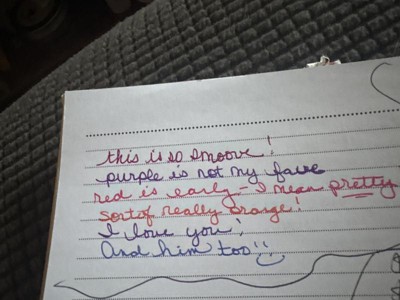 this is so smoove!
purple is not my fave
red is early - I mean pretty
sort of really orange!
I love you!
And him too!!